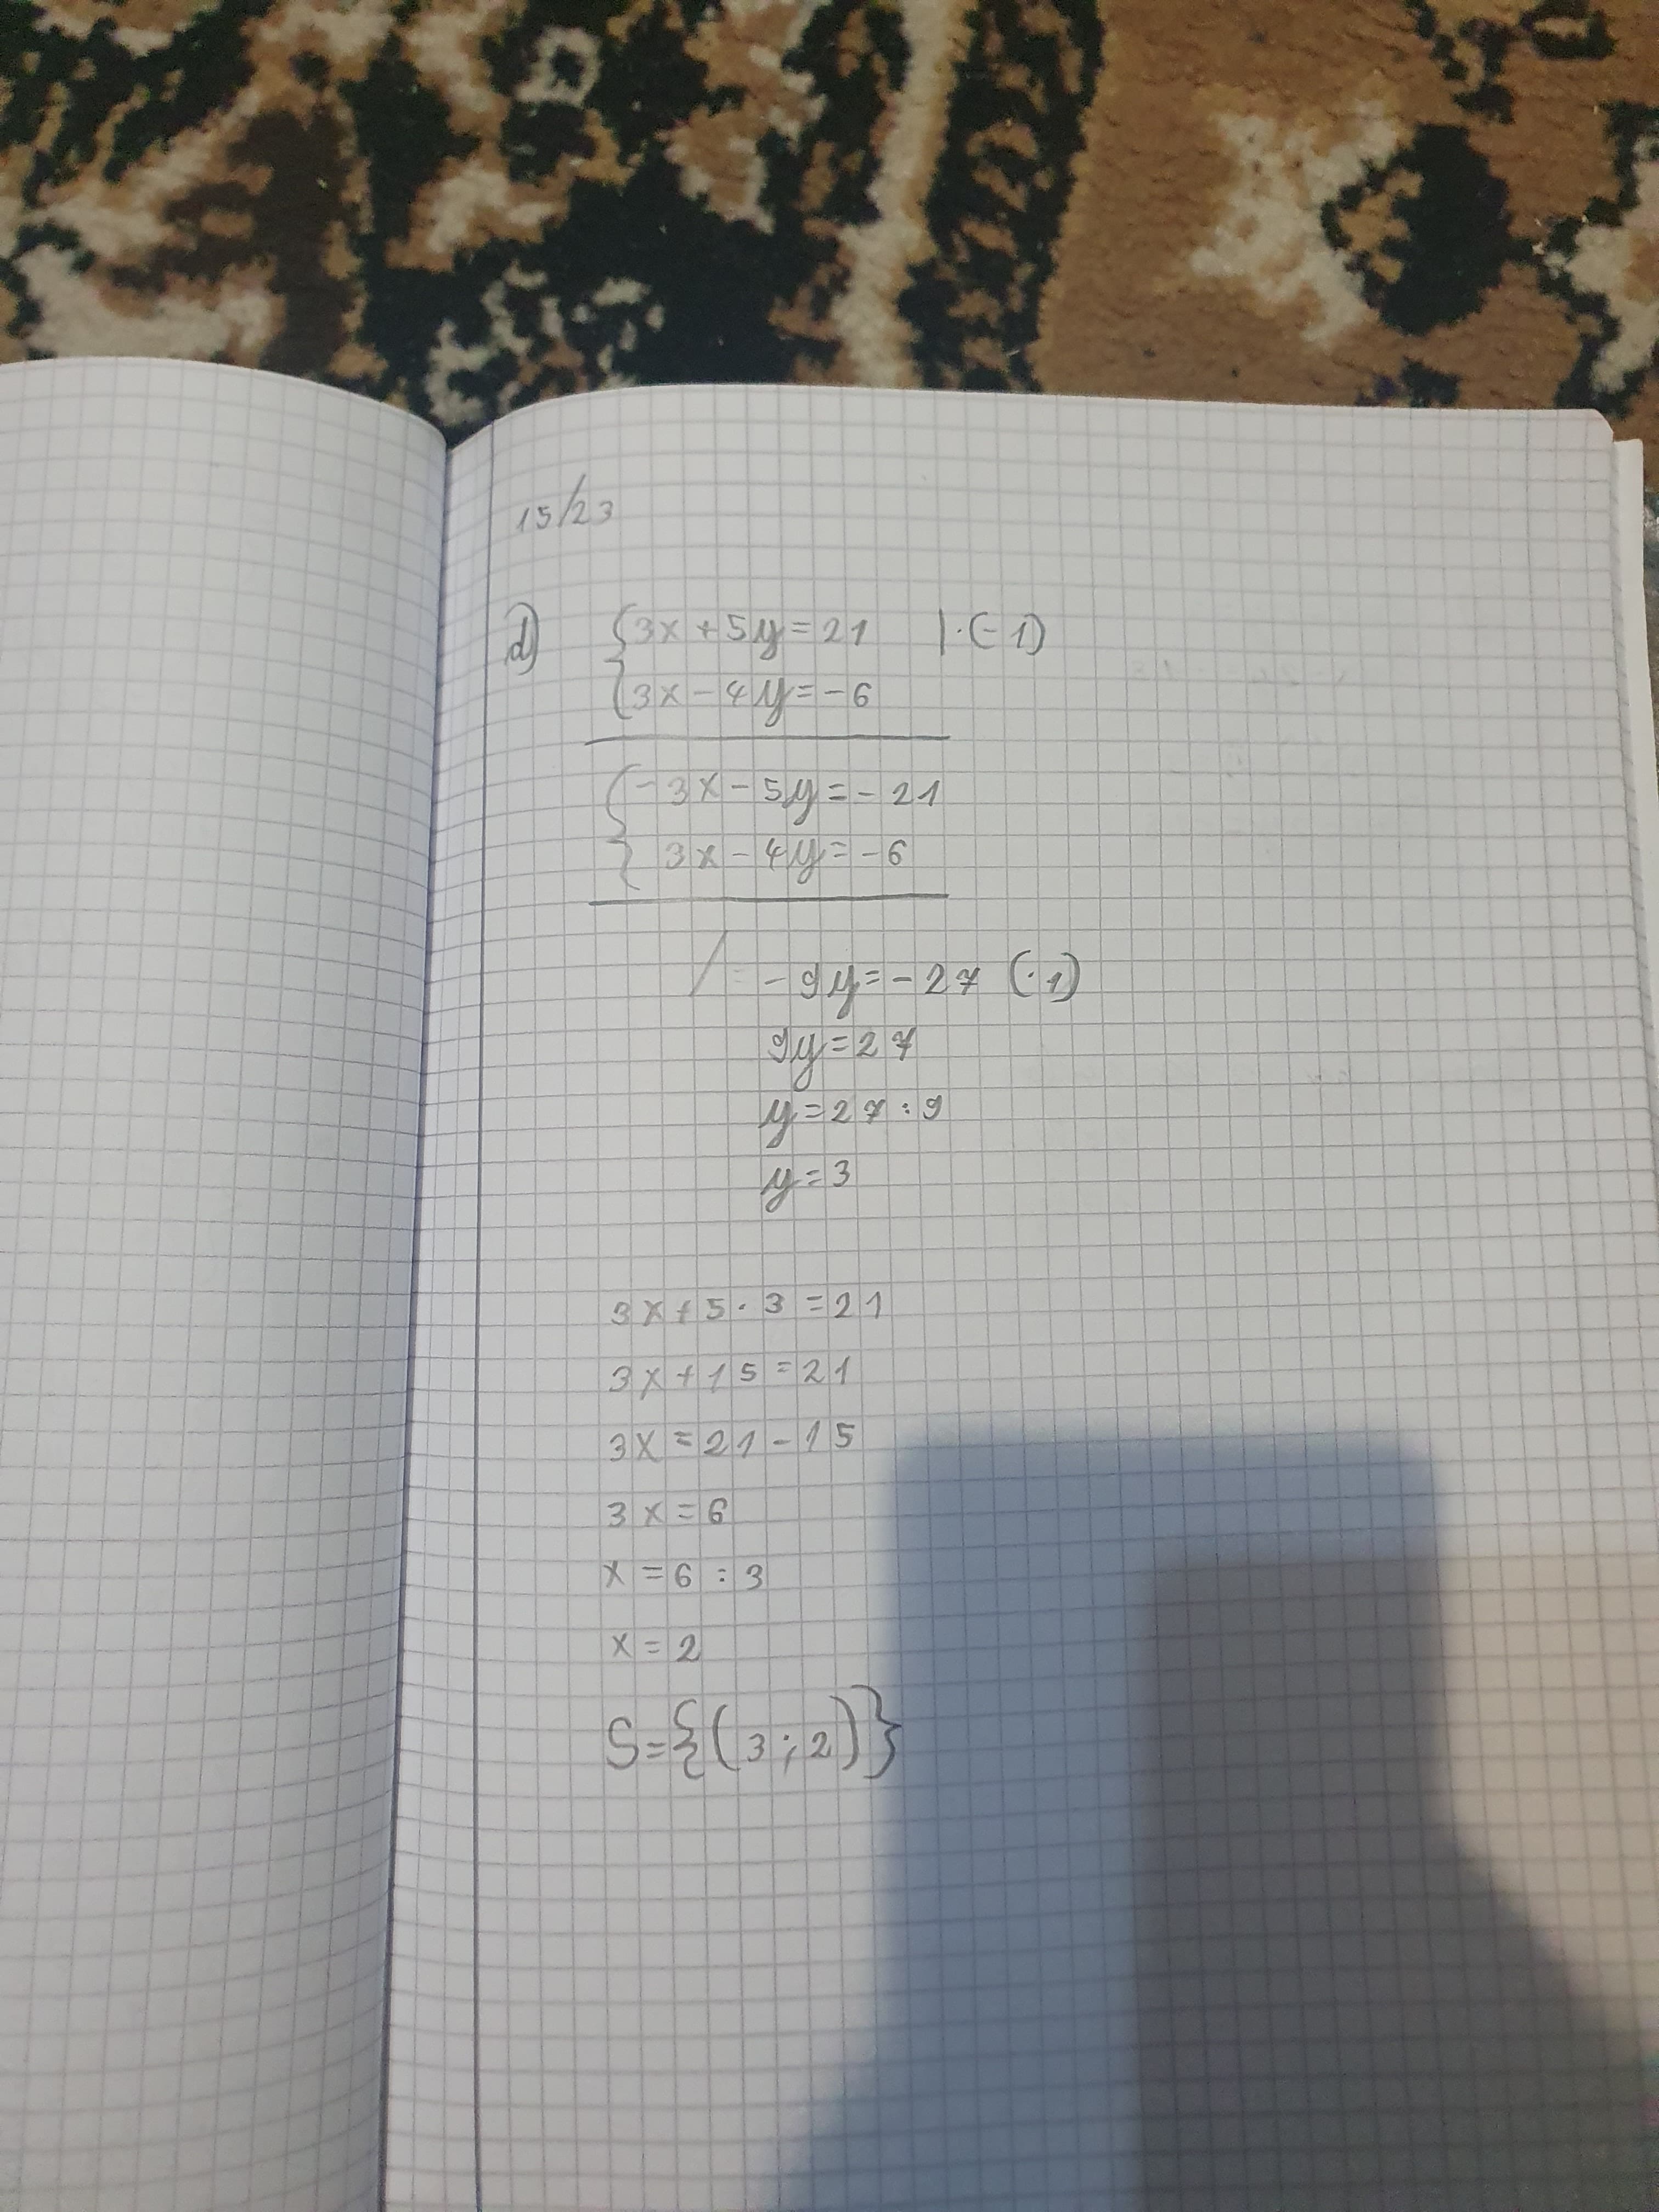 15/23
d) {3x+5y=21 |·(-1)
{3x-4y=-6
{-3x-5y=-21
{3x-4y=-6
/ -9y=-27 (·1)
9y=27
y=27:9
y=3
3x+5·3=21
3x+15=21
3x=21-15
3x=6
x=6:3
x=2
S={(3;2)}